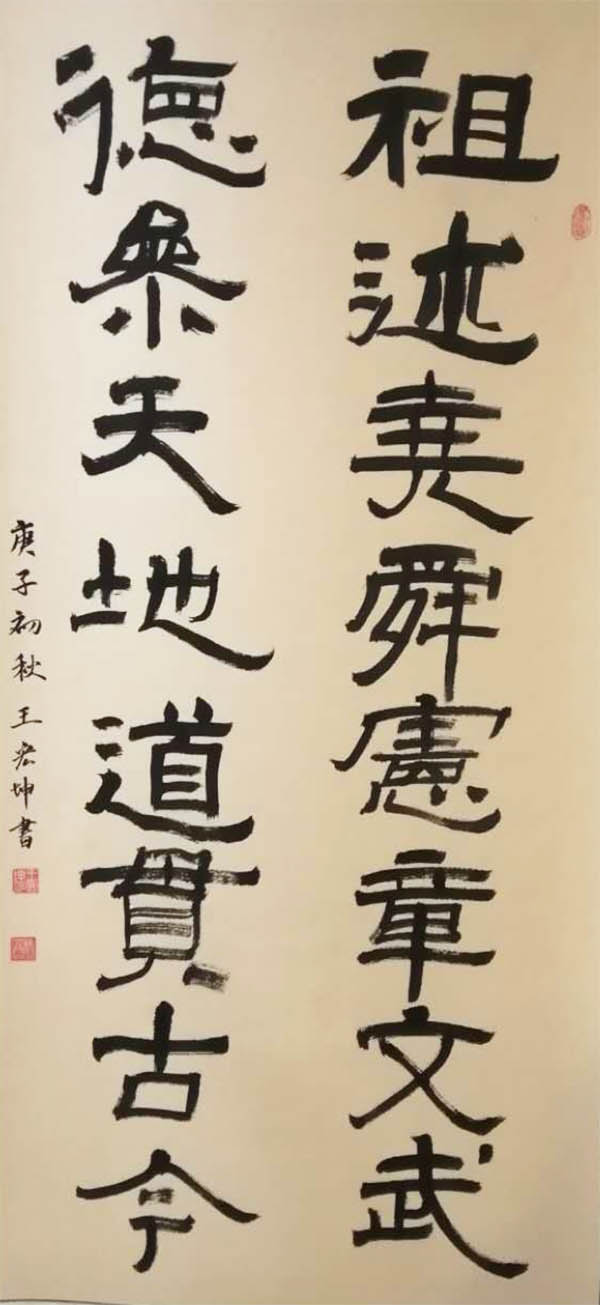 祖述堯舜憲章文武
德叅天地道貫古今
庚子初秋王宏坤書